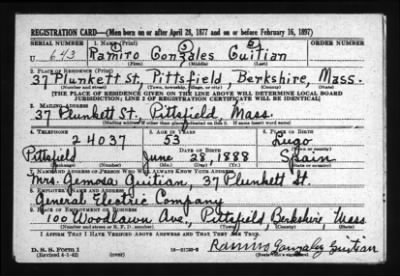 REGISTRATION CARD—(Men born on or after April 28, 1877 and on or before February 16, 1897)
SERIAL NUMBER 1. NAME (Print) ORDER NUMBER
U 643 Ramiro Gonzales Guitian
(First) (Middle) (Last)
2. PLACE OF RESIDENCE (Print)
37 Plunkett St., Pittsfield, Berkshire, Mass.
(Number and street) (Town, township, village, or city) (County) (State)
[THE PLACE OF RESIDENCE GIVEN ON THE LINE ABOVE WILL DETERMINE LOCAL BOARD
JURISDICTION; LINE 2 OF REGISTRATION CERTIFICATE WILL BE IDENTICAL]
3. MAILING ADDRESS
37 Plunkett St. Pittsfield, Mass.
[Mailing address if other than place indicated on line 2. If same insert word same]
4. TELEPHONE 5. AGE IN YEARS 6. PLACE OF BIRTH
24037 53 Lugo
DATE OF BIRTH (Town or county)
Pittsfield June 28, 1888 Spain
(Exchange) (Number) (Mo.) (Day) (Yr.) (State or country)
7. NAME AND ADDRESS OF PERSON WHO WILL ALWAYS KNOW YOUR ADDRESS
Mrs. Guitian, 37 Plunkett St.
8. EMPLOYER'S NAME AND ADDRESS
General Electric Company
9. PLACE OF EMPLOYMENT OR BUSINESS
100 Woodlawn Ave., Pittsfield Berkshire, Mass
(Number and street or R. F. D. number) (Town) (County) (State)
I AFFIRM THAT I HAVE VERIFIED ABOVE ANSWERS AND THAT THEY ARE TRUE.
D. S. S. Form 1
(Revised 4-1-42) (over) Ramiro Gonzalez Guitian
(Registrant's signature)